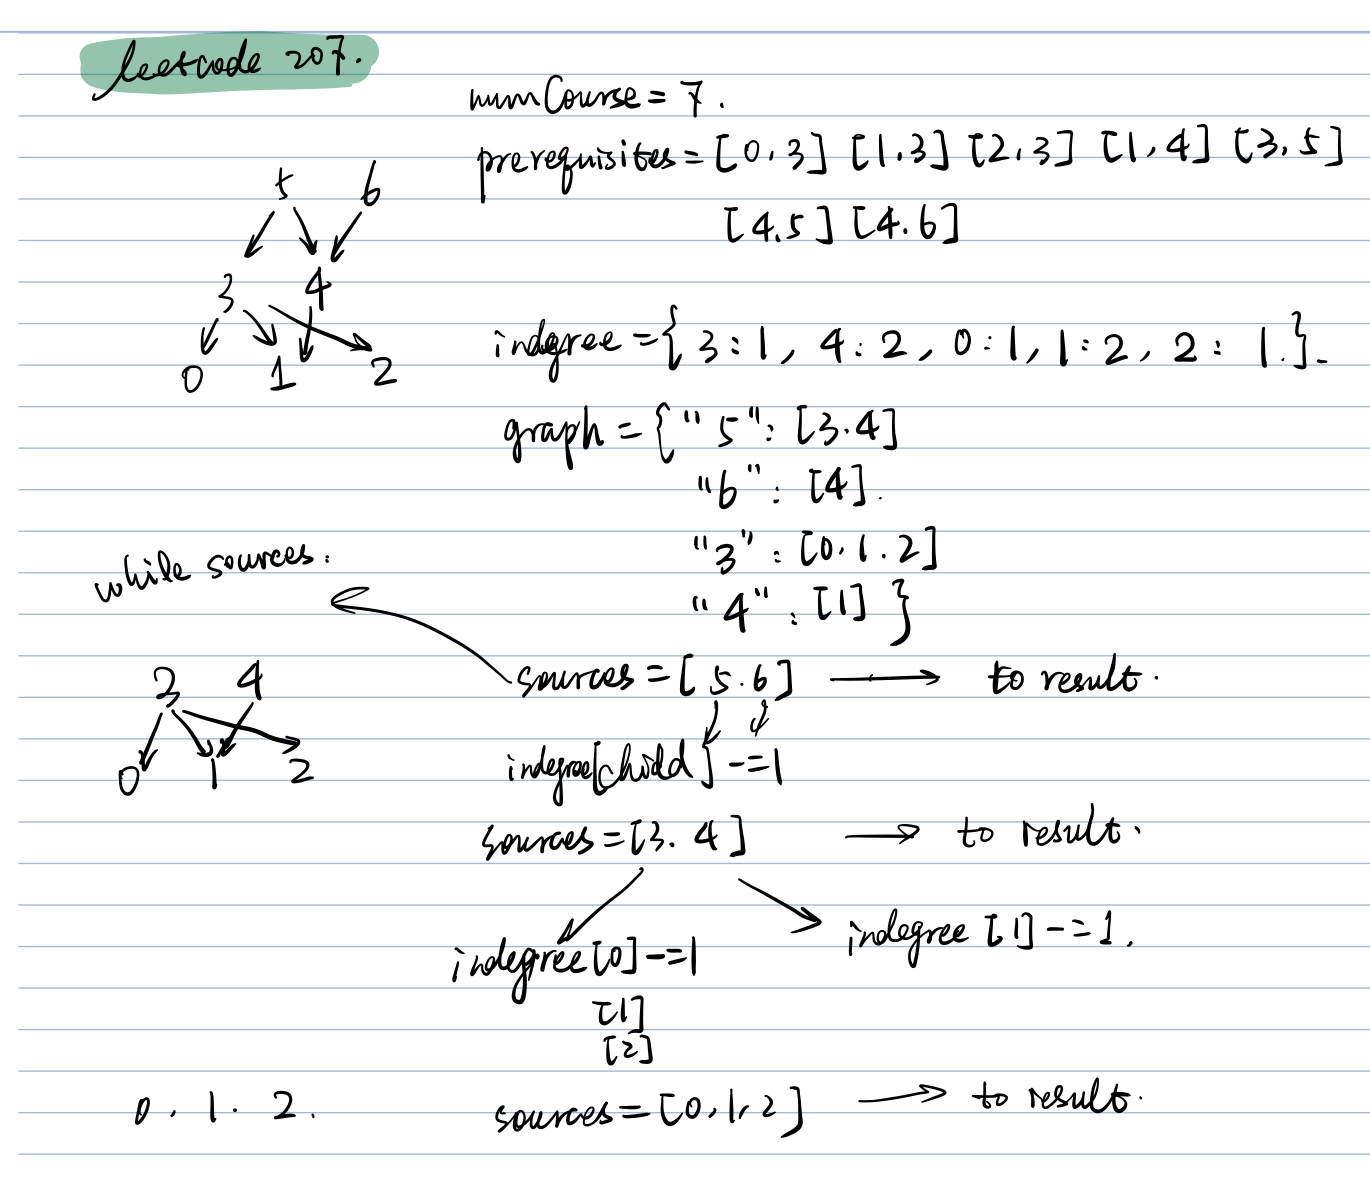 leetcode 207.
numCourse = 7.
prerequisites = [0,3] [1,3] [2,3] [1,4] [3,5]
[4,5] [4.6]
5 6
3 4
0 1 2
indgree = { 3:1, 4:2, 0:1, 1:2, 2:1.}
graph = { "5": [3.4]
"6": [4].
"3": [0.1.2]
"4": [1] }
while sources.
sources = [5.6] → to result.
3 4
0 1 2
indegree[child] -=1
sources = [3. 4] → to result.
indegree [0] -=1
indegree [1] -= 1.
[1]
[2]
0. 1. 2.
sources = [0,1,2] → to result.